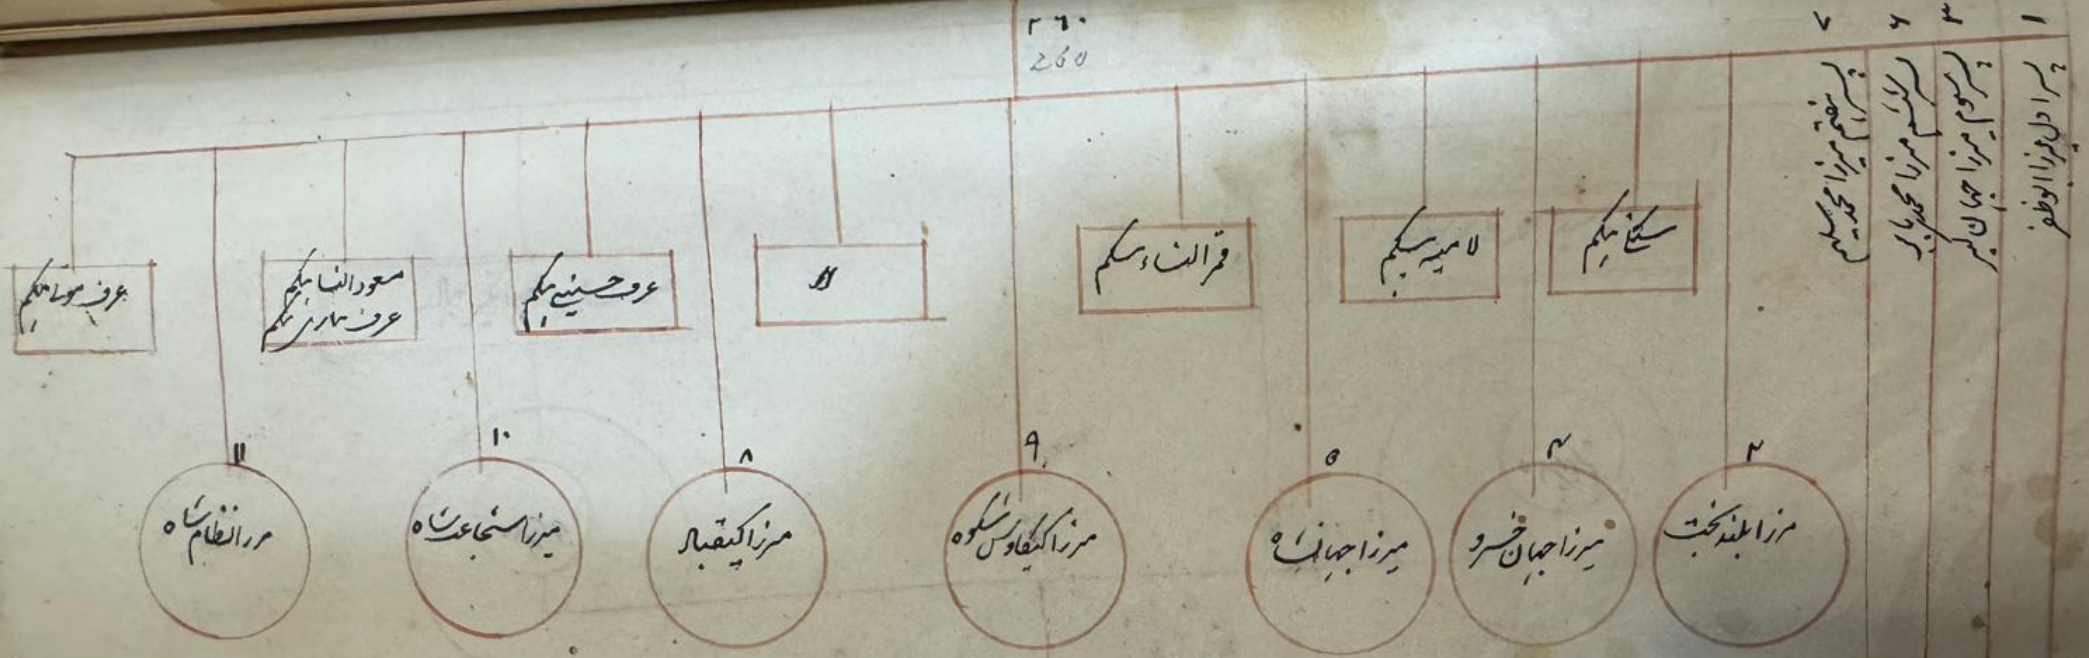 ۲۶۰
260
۱
پسر اول میرزا ابوظفر
۳
پسر سوم میرزا جهان گیر
۶
پسر ششم میرزا محمد بابر
۷
پسر هفتم میرزا محمد سلیم
بیگم
بیگم
قمر النساء بیگم
عرف حسینی بیگم
النسا بیگم
عرف بیگم
عرف بیگم
۲
مرزا بلند بخت
۴
میرزا جهان خسرو
۵
میرزا جهان شاه
۹
مرزا کیکاوس شکوه
۸
مرزا کیقباد
۱۰
میرزا شجاعت شاه
۱۱
مرزا نظام شاه